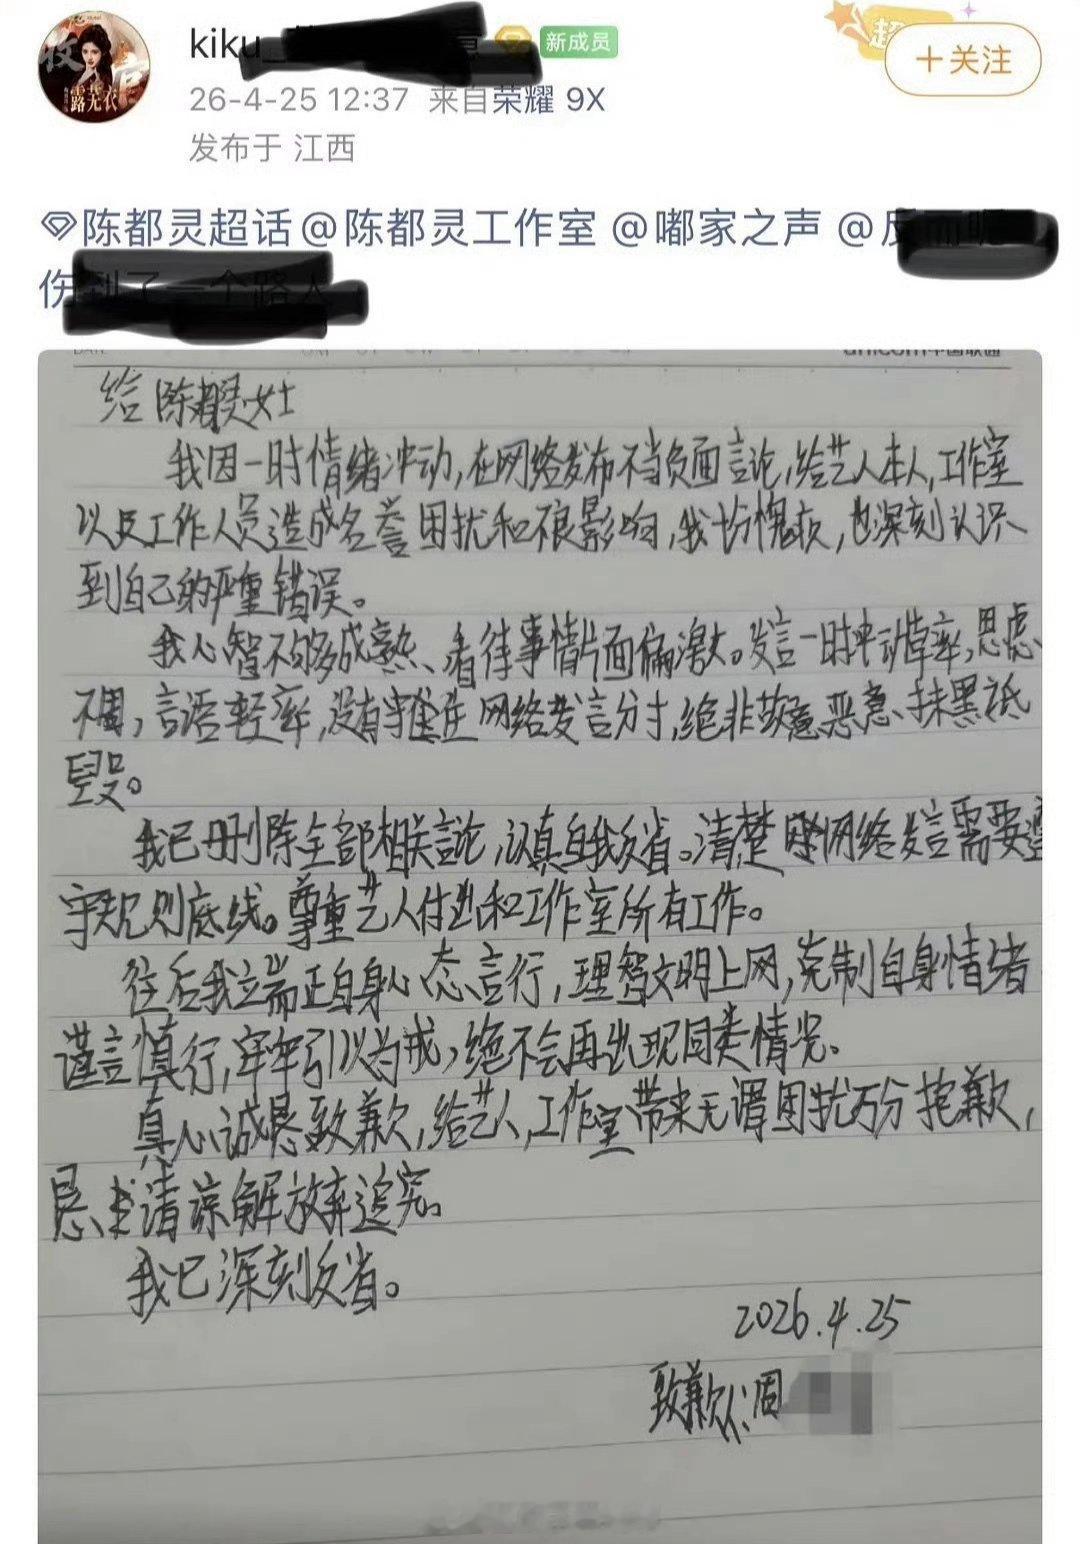 kiku
新成员
超
+关注
26-4-25 12:37 来自荣耀 9X
发布于 江西
陈都灵超话@陈都灵工作室 @嘟家之声 @反
伤到了一个路人
unicom中国联通
给陈都灵女士
我因一时情绪冲动,在网络发布不当负面言论,给艺人本人,工作室
以及工作人员造成名誉困扰和不良影响,我十分愧疚,也深刻认识
到自己的严重错误。
我心智不够成熟、看待事情片面偏激。发言一时冲动草率,思虑
不周,言语轻率,没有守住在网络发言分寸,绝非故意恶意、抹黑诋
毁。
我已删除全部相关言论,认真自我反省。清楚网络发言需要遵
守规则底线。尊重艺人付出和工作室所有工作。
往后我立端正自身心态言行,理智文明上网,克制自身情绪
谨言慎行,牢牢引以为戒,绝不会再出现同类情况。
真心诚恳致歉,给艺人,工作室带来无谓困扰万分抱歉,
恳求请谅解放弃追究。
我已深刻反省。
2026.4.25
致歉人:周